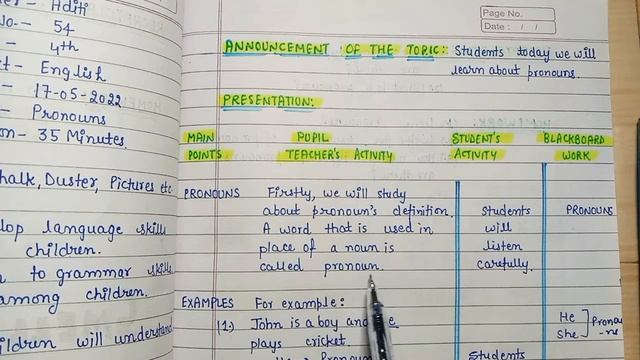 Aditi
No.- 54
- 4th
- English
- 17-05-2022
- Pronouns
- 35 Minutes
Duster, Pictures etc
language skills
children.
to grammar skills
among children.
children will understand
Page No.
Date : / /
ANNOUNCEMENT OF THE TOPIC:: Students today we will
learn about pronouns.
PRESENTATION:
MAIN POINTS
PUPIL TEACHER'S ACTIVITY
STUDENT'S ACTIVITY
BLACKBOARD WORK
PRONOUNS
Firstly, we will study
about pronoun's definition.
A word that is used in
place of a noun is
called pronoun.
students
will
listen
carefully.
PRONOUNS
EXAMPLES
For example:
(1.) John is a boy and
plays cricket.
He
She
Pronou
-ns
Students